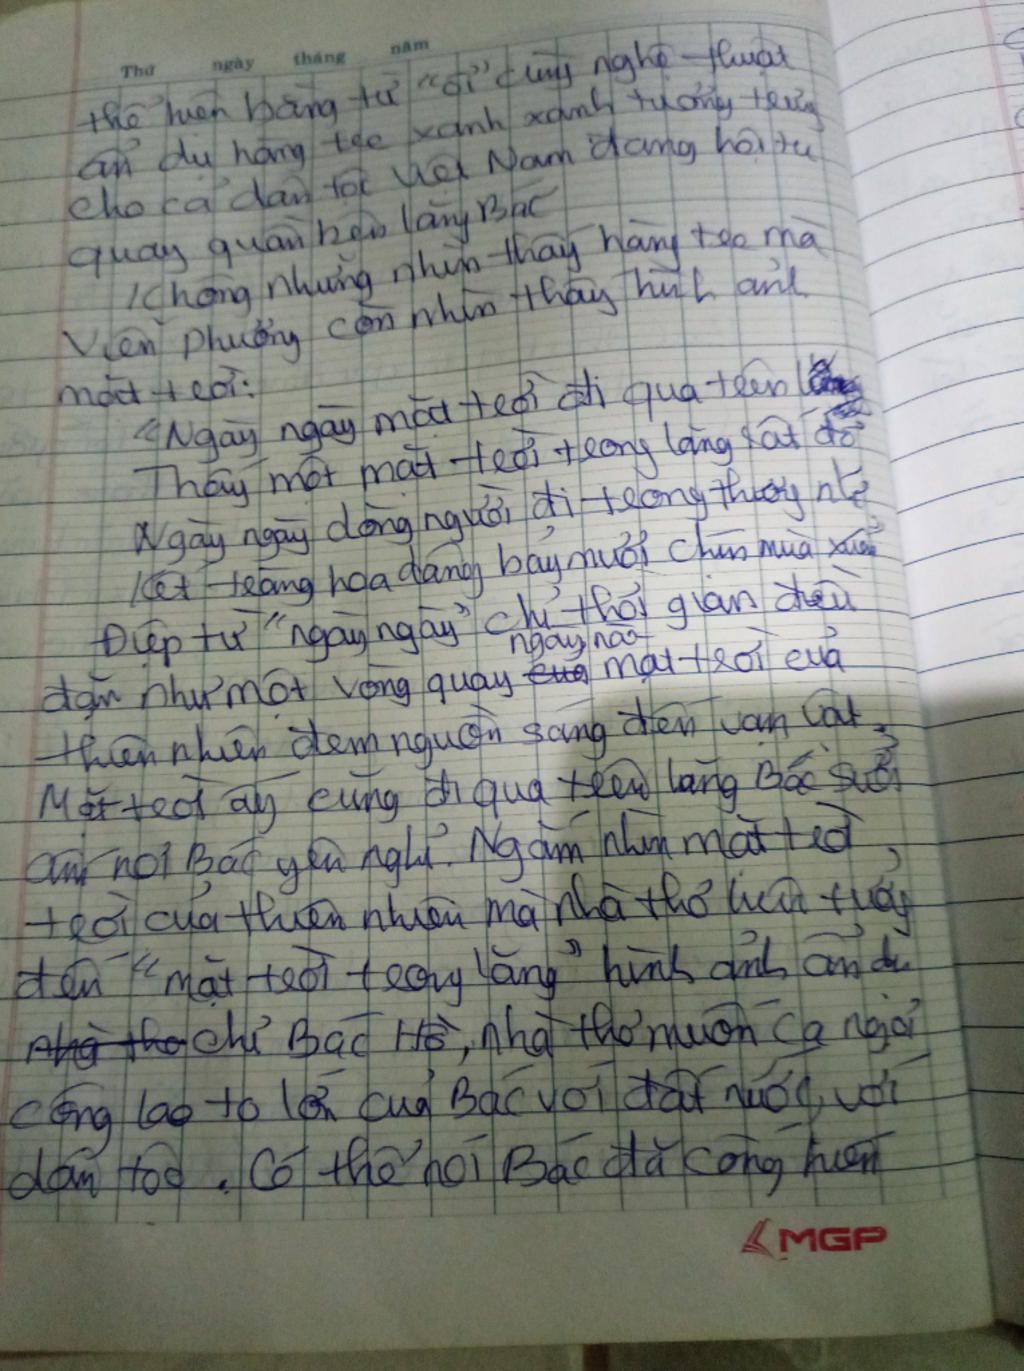 Thứ ngày tháng năm
thể hiện bằng từ "ôi" cùng nghệ thuật
ẩn dụ hàng tre xanh xanh tượng trưng
cho cả dân tộc Việt Nam đang hội tụ
quay quần bên lăng Bác
Không những nhìn thấy hàng tre mà
Viễn Phương còn nhìn thấy hình ảnh
mặt trời:
"Ngày ngày mặt trời đi qua trên lăng
Thấy một mặt trời trong lăng rất đỏ
Ngày ngày dòng người đi trong thương nhớ
Kết tràng hoa dâng bảy mươi chín mùa xuân
Điệp từ "ngày ngày" chỉ thời gian đều
ngày nào
đặn như một vòng quay mặt trời của
thiên nhiên đem nguồn sáng đến vạn vật.
Mặt trời ấy cũng đi qua trên lăng Bác sưởi
ấm nơi Bác yên nghỉ. Ngắm nhìn mặt trời
trời của thiên nhiên mà nhà thơ liên tưởng
đến "mặt trời trong lăng" hình ảnh ẩn dụ
nhà thơ chỉ Bác Hồ, nhà thơ muốn ca ngợi
công lao to lớn của Bác với đất nước, với
dân tộc. Có thể nói Bác đã cống hiến
MGP